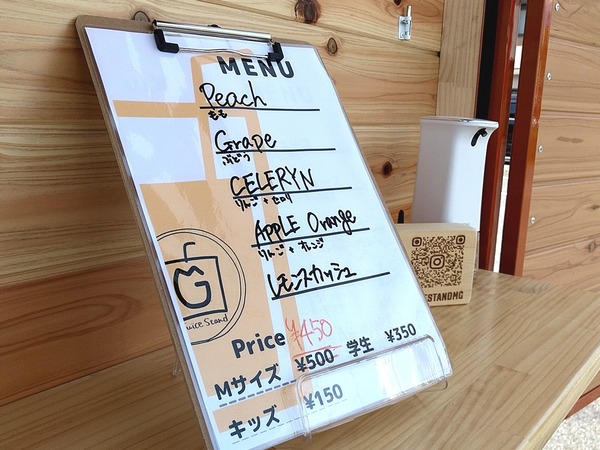 MENU
Peach
もも
Grape
ぶどう
CELERYN
りんご + セロリ
APPLE Orange
りんご + オレンジ
レモンスカッシュ
G
Juice Stand
Price ¥450
Mサイズ ¥500 学生 ¥350
キッズ ¥150
ESTANDMG